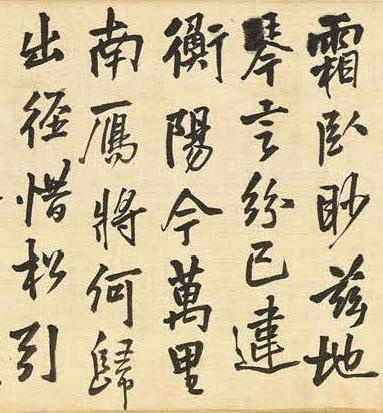 霜臥眇茲地
琴言紛已違
衡陽今萬里
南鴈將何歸
出徑惜松引